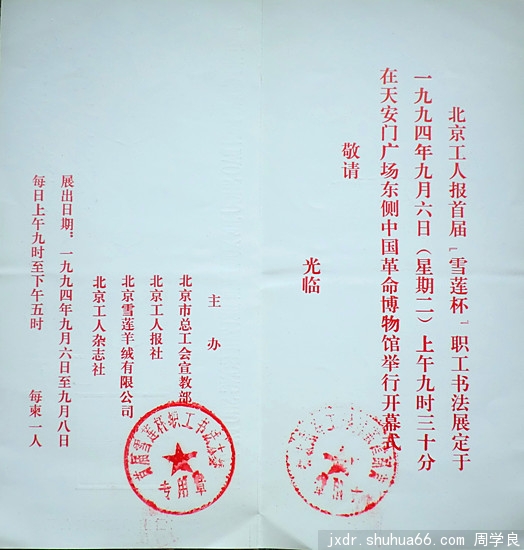 北京工人报首届「雪莲杯」职工书法展定于
一九九四年九月六日（星期二）上午九时三十分
在天安门广场东侧中国革命博物馆举行开幕式
敬请
光临
主办
北京市总工会宣教部
北京工人报社
北京雪莲羊绒有限公司
北京工人杂志社
展出日期：一九九四年九月六日至九月八日
每日上午九时至下午五时
每柬一人
首届雪莲杯职工书法大赛
专用章
jxdr.shuhua66.com 周学良